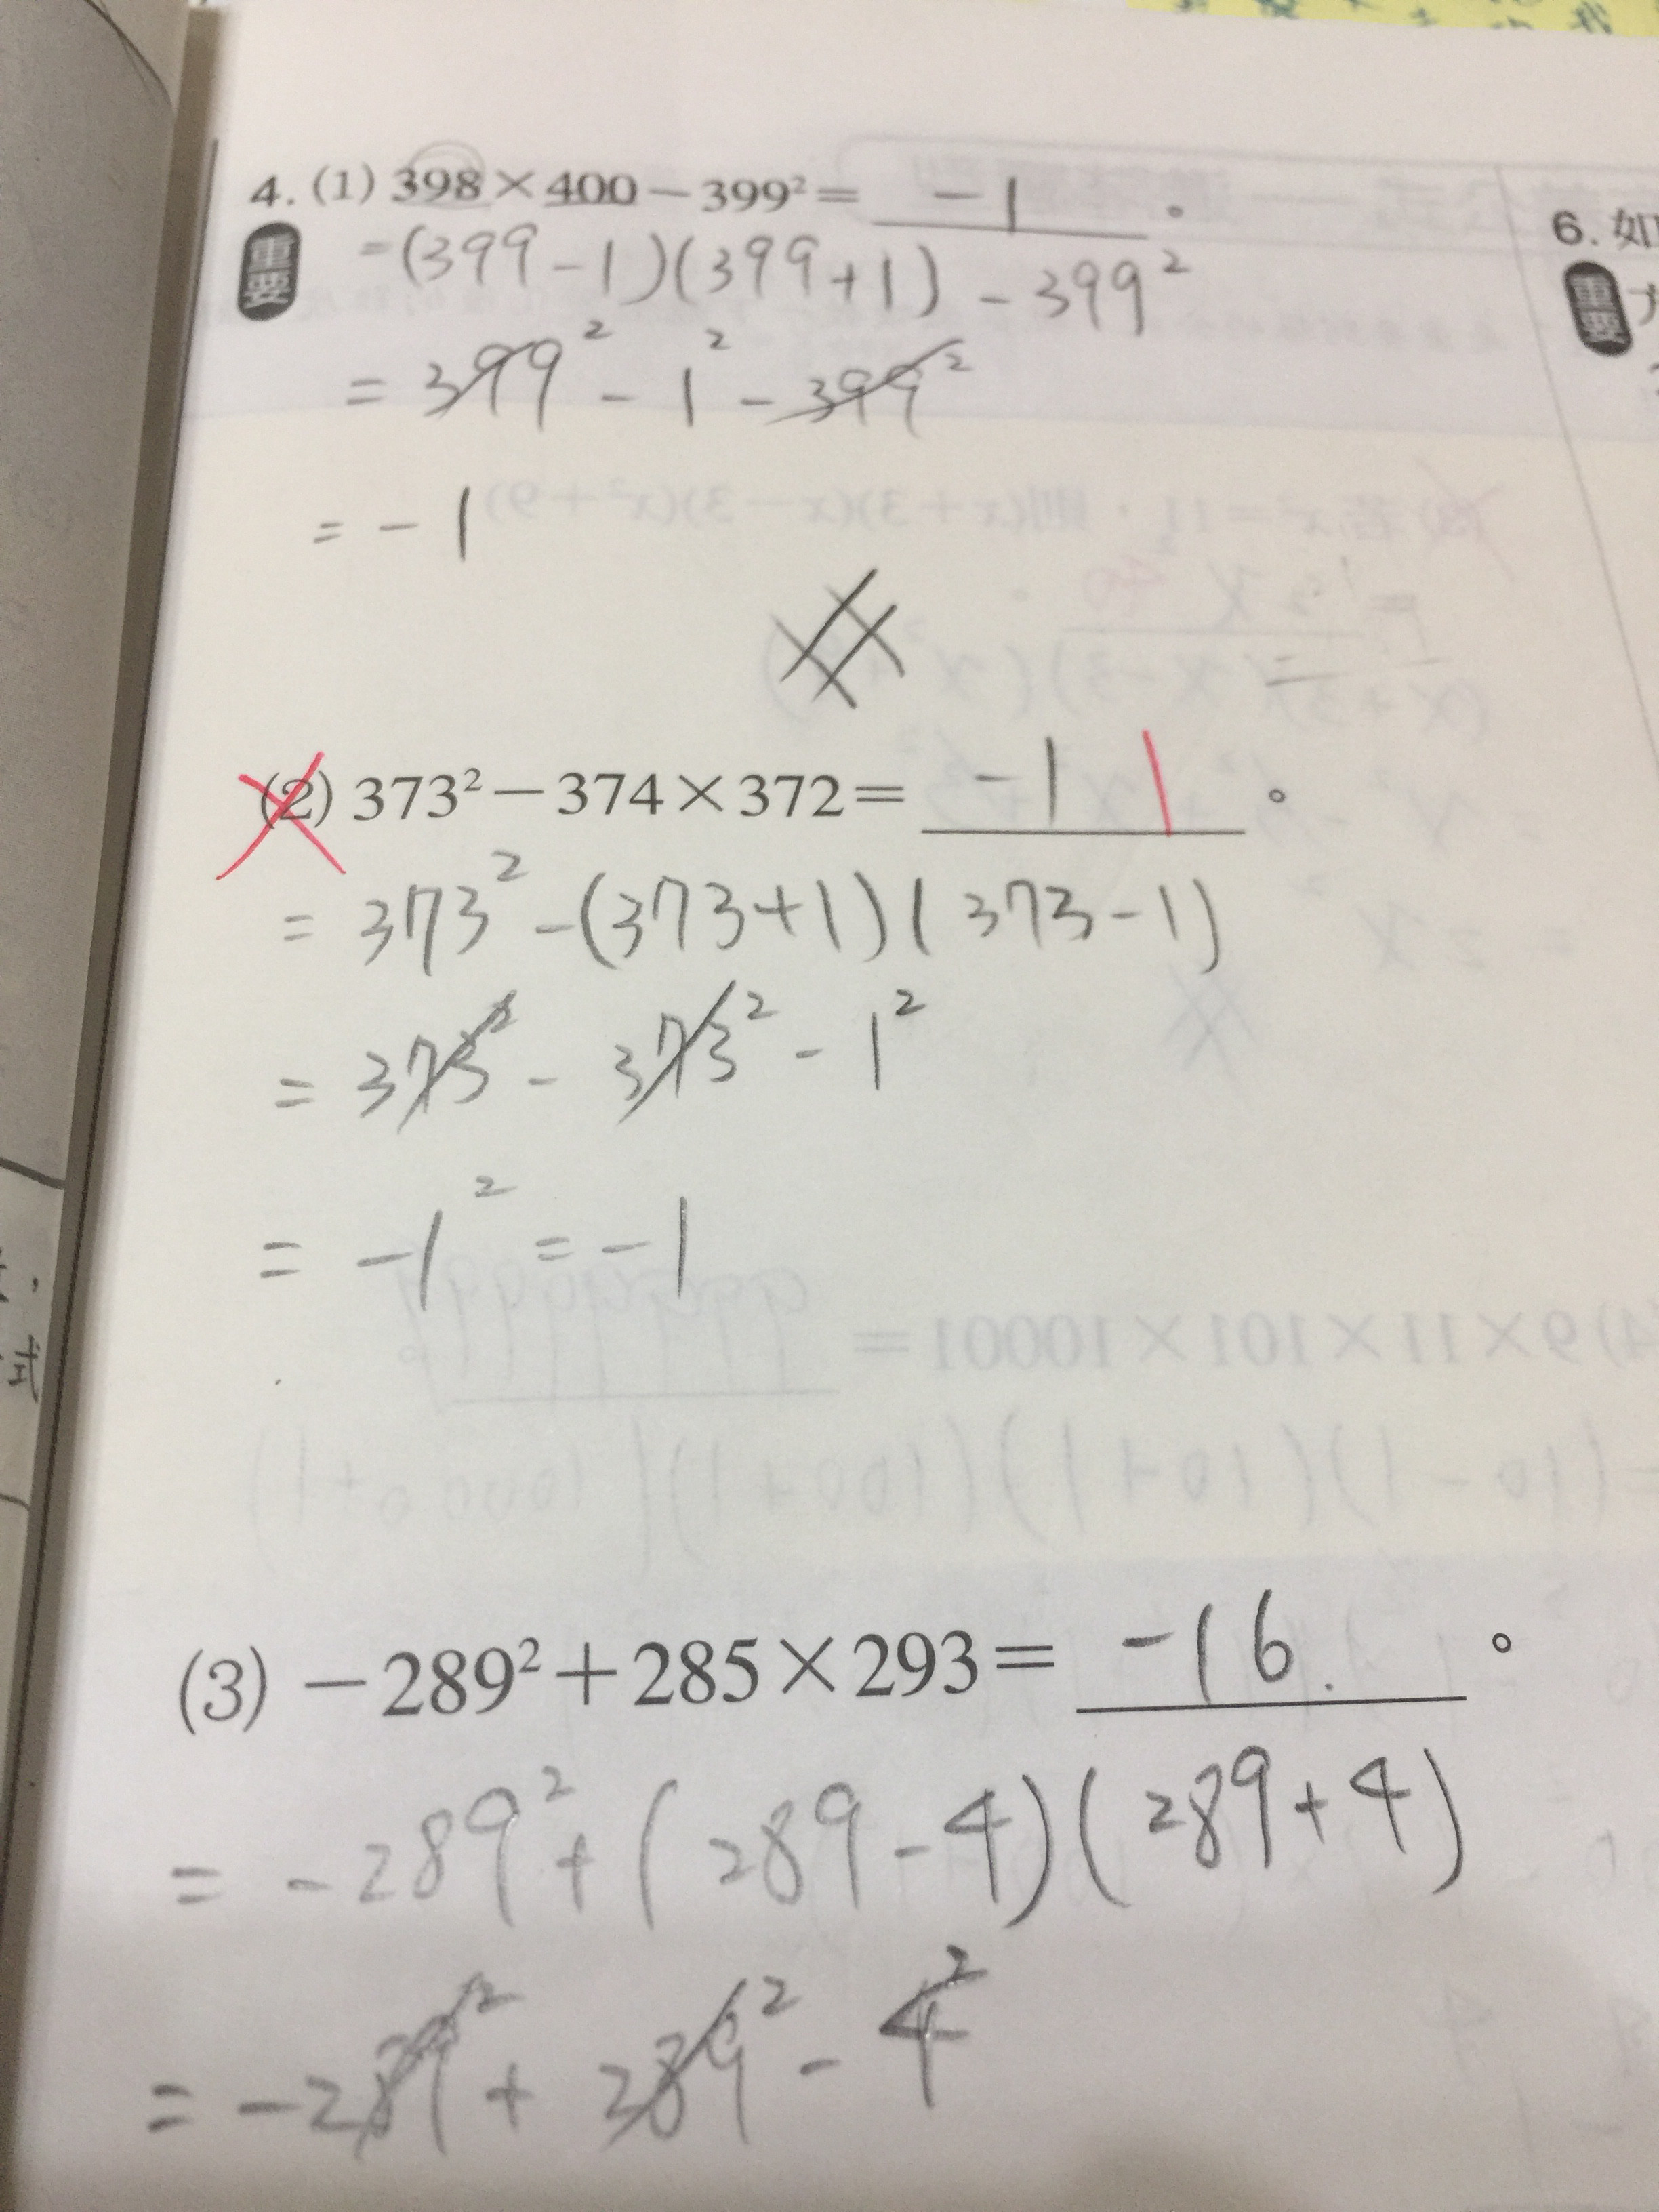 4. (1) 398×400－399²= -1 。
重要
= (399-1)(399+1) - 399²
= 399² - 1² - 399²
= -1
(2) 373²－374×372= -1 1 。
= 373² - (373+1)(373-1)
= 373² - 373² - 1²
= -1² = -1
(3) －289²+285×293= -16 。
= -289² + (289-4)(289+4)
= -289² + 289² - 4²
6. 如
重要
式